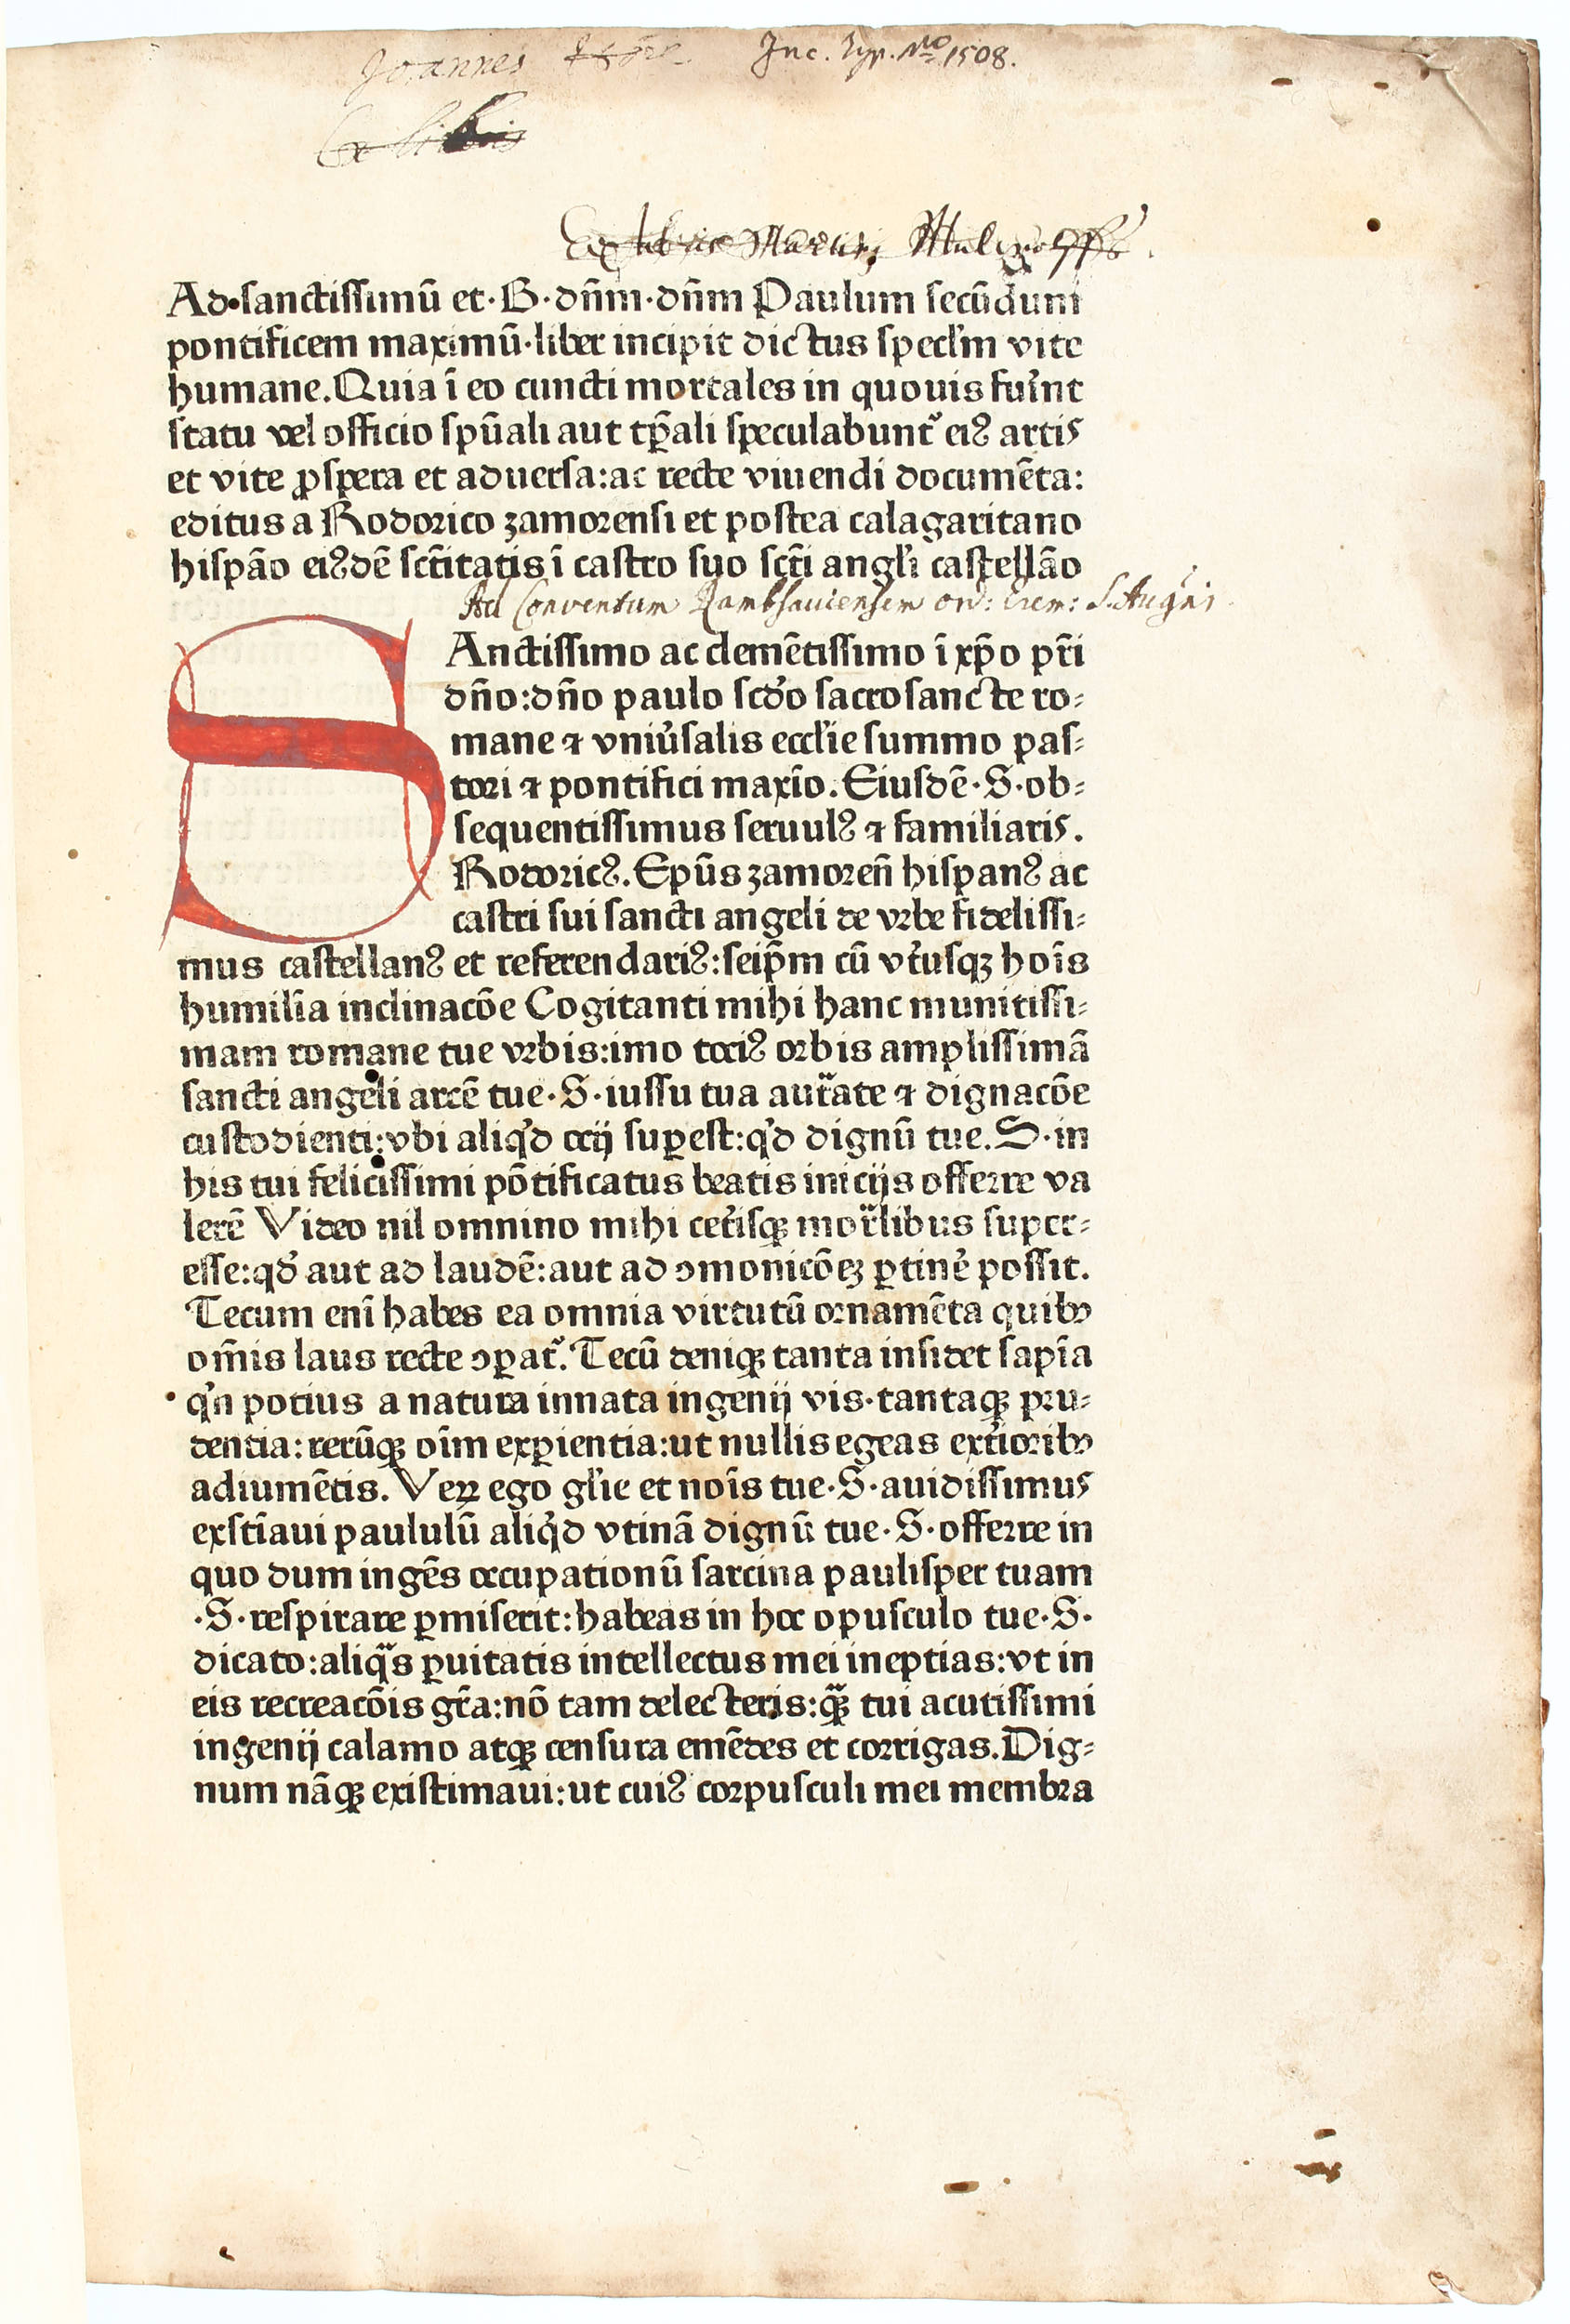 Joannes
Inc. Typ. No 1508.
Ex libris
Ex libris Martini
Ad sanctissimū et·B·dn̄m·dn̄m Paulum secūdum
pontificem maximū·liber incipit dictus specl'm vite
humane. Quia ī eo cuncti mortales in quouis fuīnt
statu vel officio spūali aut tp̄ali speculabunt᷑ eiꝰ artis
et vite ꝓspera et aduersa: ac recte viuendi documēta:
editus a Rodorico zamorensi et postea calagaritano
hispāo eiꝰdē sc̄titatis ī castro suo sc̄ti angl'i castellāo
Ad Conventum Rambsauiensem ord: Erem: S. Aug'ni
Anctissimo ac clemētissimo ī xp̄o pr̄i
dn̄o: dn̄o paulo scd'o sacrosancte ro⸗
mane ⁊ vniu'salis eccl'ie summo pas⸗
tori ⁊ pontifici maxīo. Eiusdē·S·ob⸗
sequentissimus seruulꝰ ⁊ familiaris.
Rodoricꝰ. Epūs zamoreñ hispanꝰ ac
castri sui sancti angeli de vrbe fidelissi⸗
mus castellanꝰ et referendariꝰ: seip̄m cū vt'usqꝫ hoīs
humilīa inclinacōe Cogitanti mihi hanc munitissi⸗
mam romane tue vrbis: imo tociꝰ orbis amplissimā
sancti angeli arcē tue·S·iussu tua autᷓate ⁊ dignacōe
custodienti: vbi aliq'd ocij suꝑest: q'd dignū tue. S·in
his tui felicissimi pōtificatus beatis inicijs offerre va
lerē Video nil omnino mihi cet'isqꝫ morᷓlibus super⸗
esse: qd' aut ad laudē: aut ad ꝯmonicōeꝫ ꝑtine' possit.
Tecum enī habes ea omnia virtutū ornamēta quibꝰ
om̄is laus recte ꝯꝑat᷑. Tecū deniqꝫ tanta insidet sapīa
q'n potius a natura innata ingenij vis·tantaqꝫ pru⸗
dentia: rerūqꝫ oīm exꝑientia: ut nullis egeas ext'ioribꝰ
adiumētis. Veꝝ ego gl'ie et noīs tue·S·auidissimus
exstīaui paululū aliq'd vtinā dignū tue·S·offerre in
quo dum ingēs occupationū sarcina paulisper tuam
·S·respirare ꝑmiserit: habeas in hoc opusculo tue·S·
dicato: aliqᷓs ꝑuitatis intellectus mei ineptias: vt in
eis recreacōis gr̄a: nō tam delecteris: qᷓꝫ tui acutissimi
ingenij calamo atqꝫ censura emēdes et corrigas. Dig⸗
num nāqꝫ existimaui: ut cuiꝰ corpusculi mei membra